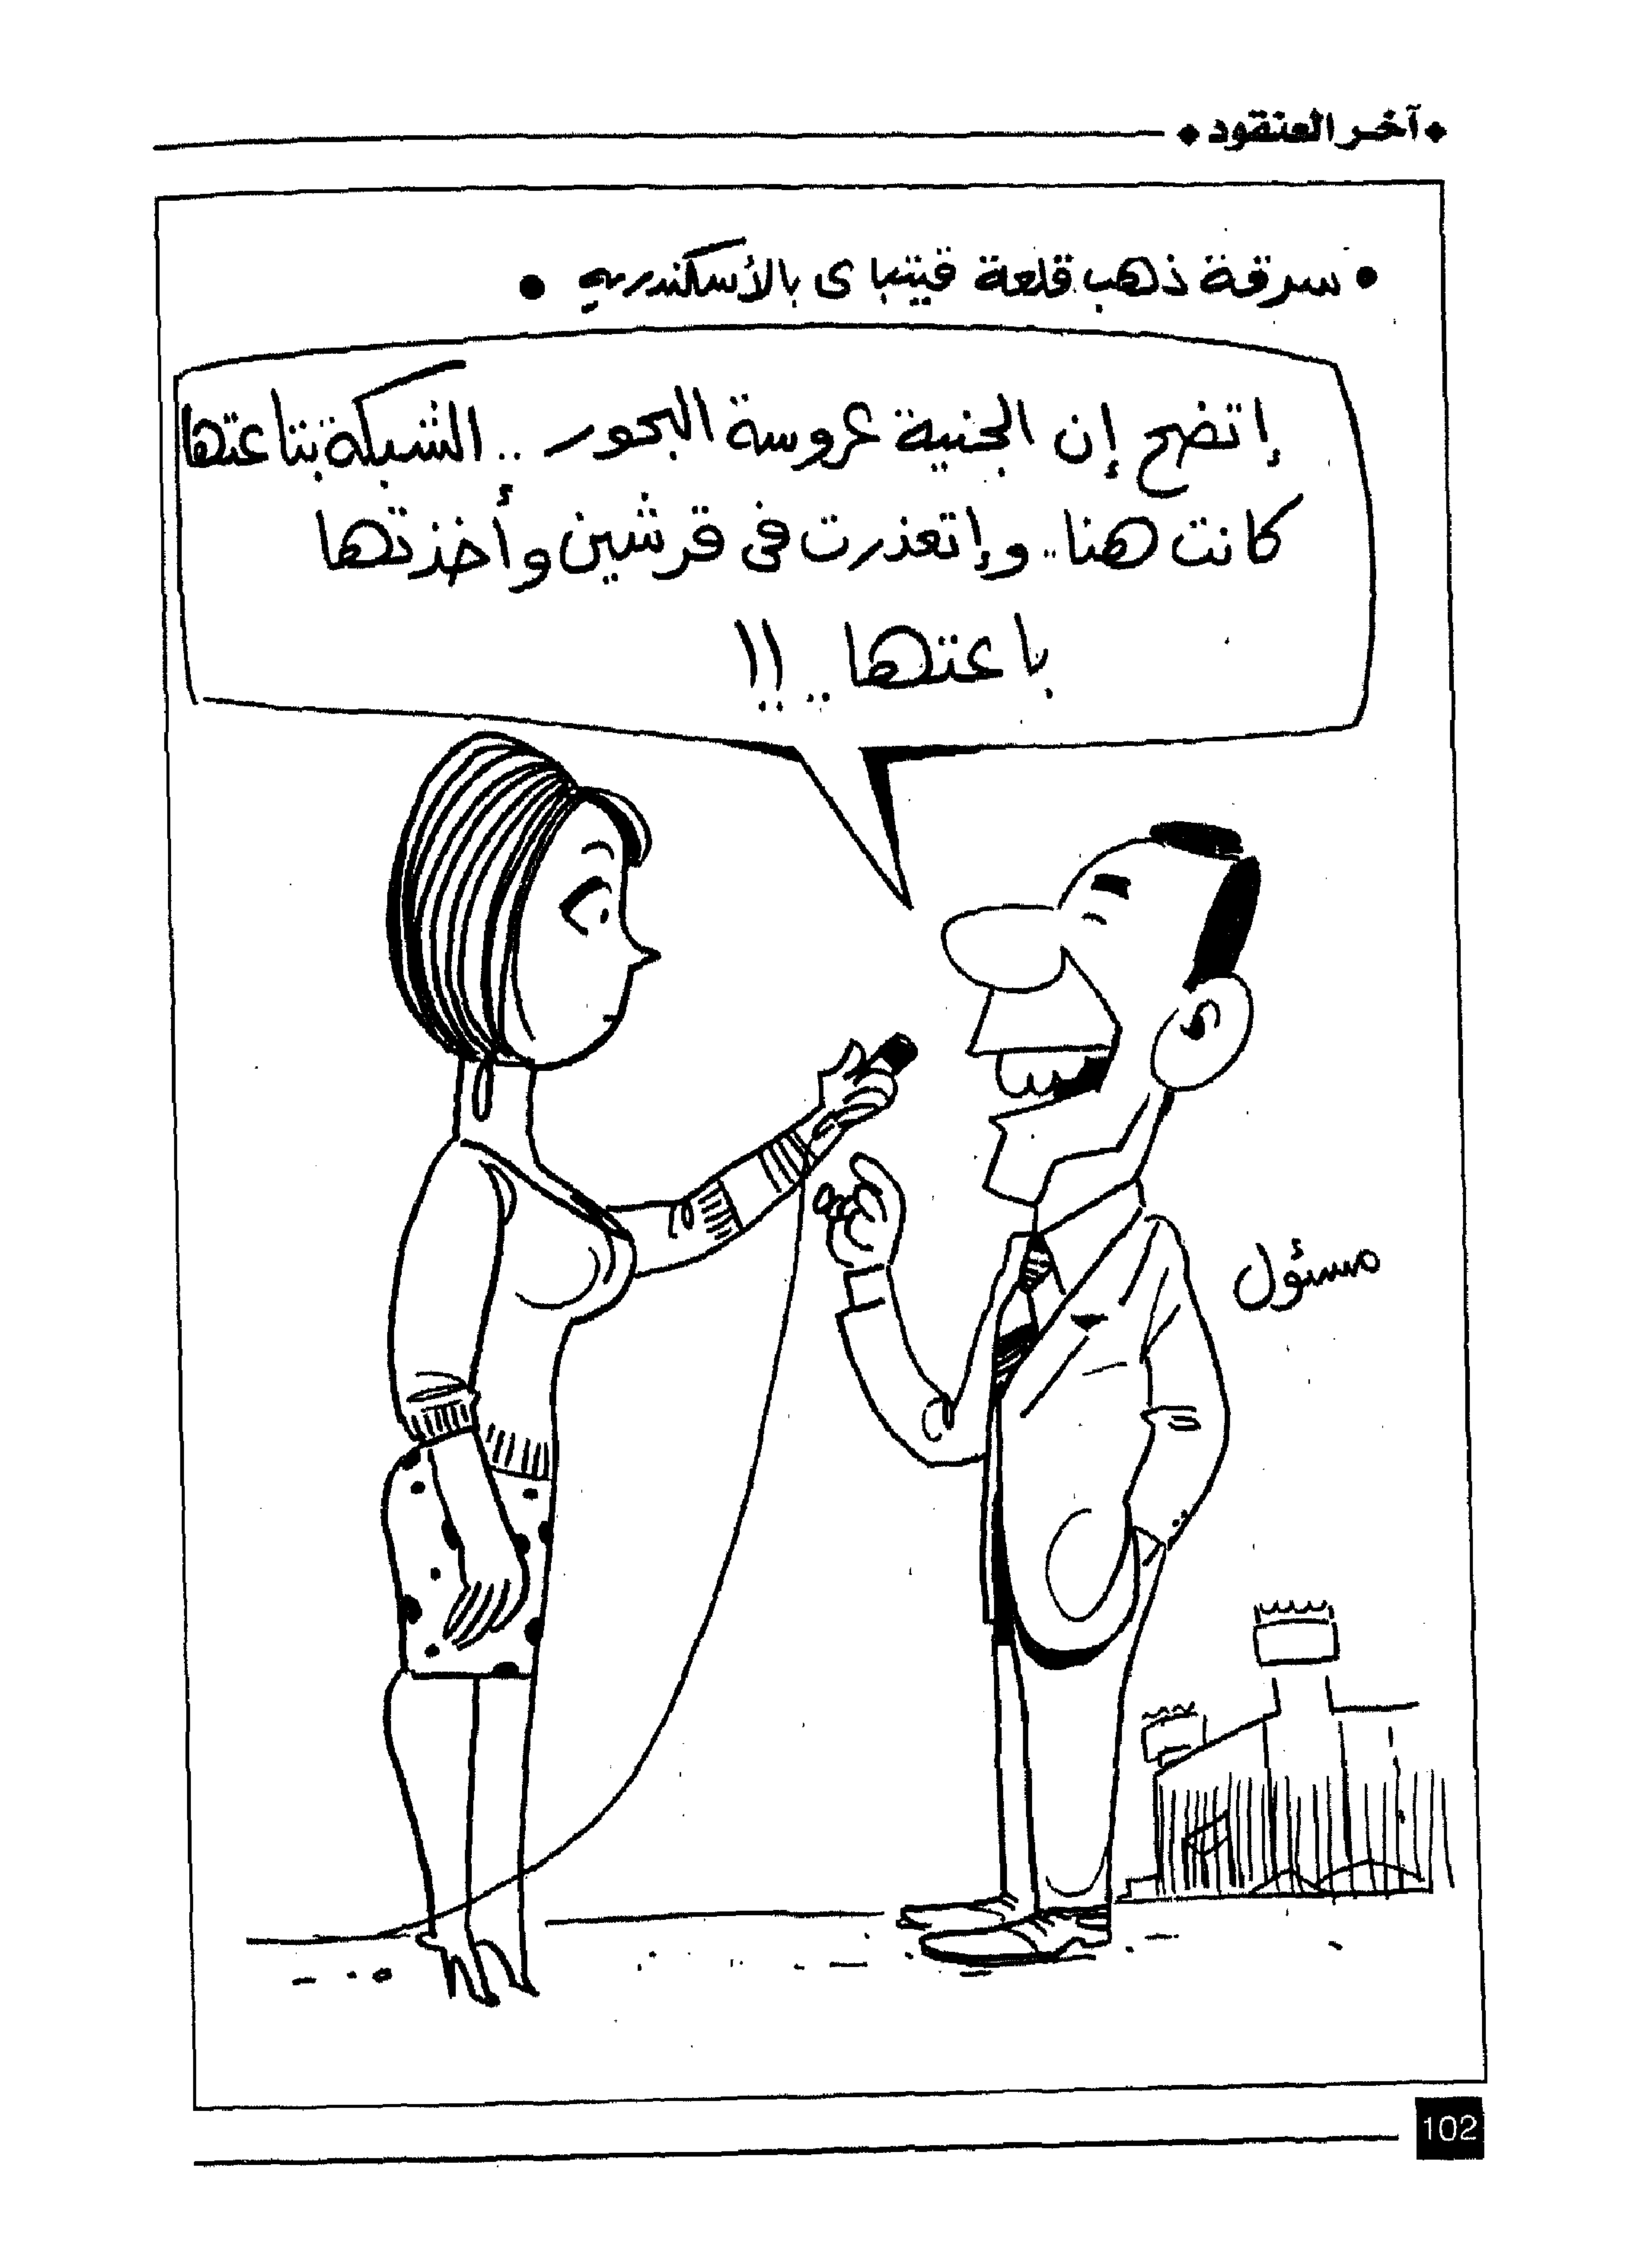 آخر العنقود
• سرقة ذهب قلعة قيتباى بالأسكندريه •
إتضح إن الجنية عروسة البحور .. الشبكة بتاعتها
كانت هنا .. وإتعذرت فى قرشين وأخذتها
باعتها .. !!
مسئول
102